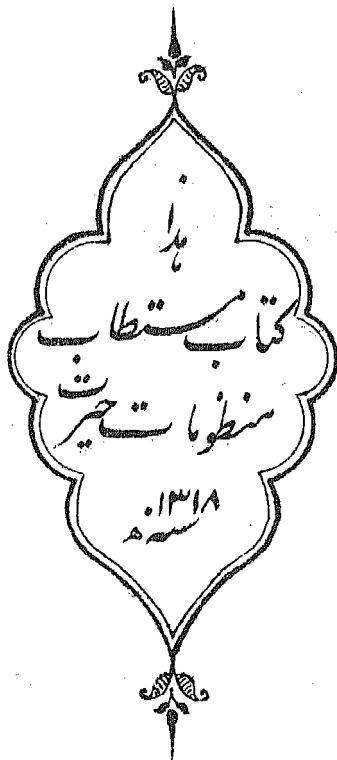 هذا
کتاب مستطاب
منظومات حیرت
سنه ۱۳۱۸ ه